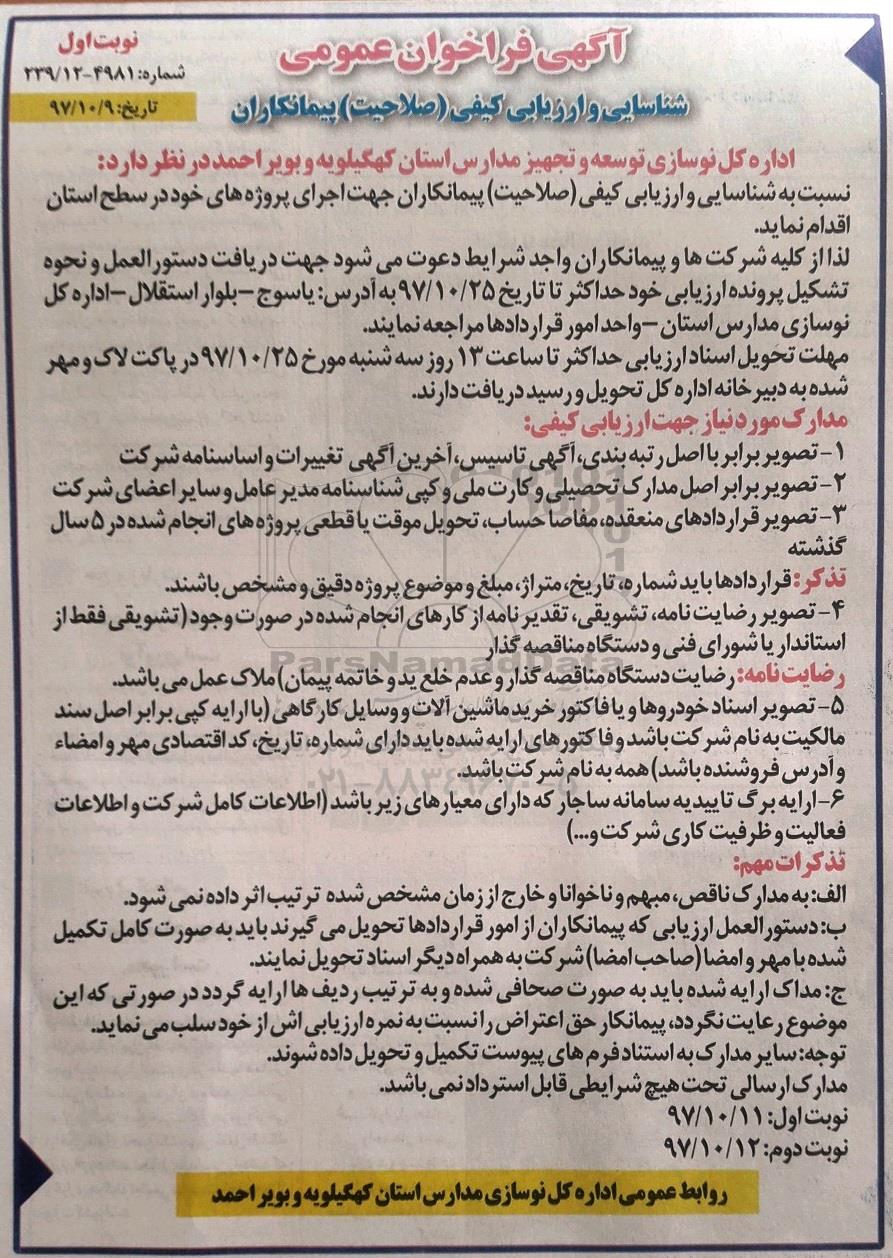 نوبت اول
شماره: ۴۹۸۱-۲۳۹/۱۲
تاریخ: ۹۷/۱۰/۹
آگهی فراخوان عمومی
شناسایی و ارزیابی کیفی (صلاحیت) پیمانکاران
اداره کل نوسازی توسعه و تجهیز مدارس استان کهگیلویه و بویر احمد در نظر دارد:
نسبت به شناسایی و ارزیابی کیفی (صلاحیت) پیمانکاران جهت اجرای پروژه های خود در سطح استان
اقدام نماید.
لذا از کلیه شرکت ها و پیمانکاران واجد شرایط دعوت می شود جهت دریافت دستورالعمل و نحوه
تشکیل پرونده ارزیابی خود حداکثر تا تاریخ ۹۷/۱۰/۲۵ به آدرس: یاسوج –بلوار استقلال –اداره کل
نوسازی مدارس استان –واحد امور قراردادها مراجعه نمایند.
مهلت تحویل اسناد ارزیابی حداکثر تا ساعت ۱۳ روز سه شنبه مورخ ۹۷/۱۰/۲۵ در پاکت لاک و مهر
شده به دبیرخانه اداره کل تحویل و رسید دریافت دارند.
مدارک مورد نیاز جهت ارزیابی کیفی:
۱- تصویر برابر با اصل رتبه بندی، آگهی تاسیس، آخرین آگهی تغییرات و اساسنامه شرکت
۲- تصویر برابر اصل مدارک تحصیلی و کارت ملی و کپی شناسنامه مدیر عامل و سایر اعضای شرکت
۳- تصویر قراردادهای منعقده، مفاصا حساب، تحویل موقت یا قطعی پروژه های انجام شده در ۵ سال
گذشته
تذکر: قراردادها باید شماره، تاریخ، متراژ، مبلغ و موضوع پروژه دقیق و مشخص باشند.
۴- تصویر رضایت نامه، تشویقی، تقدیر نامه از کارهای انجام شده در صورت وجود (تشویقی فقط از
استاندار یا شورای فنی و دستگاه مناقصه گذار
رضایت نامه: رضایت دستگاه مناقصه گذار و عدم خلع ید و خاتمه پیمان) ملاک عمل می باشد.
۵- تصویر اسناد خودروها و یا فاکتور خرید ماشین آلات و وسایل کارگاهی (با ارایه کپی برابر اصل سند
مالکیت به نام شرکت باشد و فاکتورهای ارایه شده باید دارای شماره، تاریخ، کد اقتصادی مهر و امضاء
و آدرس فروشنده باشد) همه به نام شرکت باشد.
۶- ارایه برگ تاییدیه سامانه ساجار که دارای معیارهای زیر باشد (اطلاعات کامل شرکت و اطلاعات
فعالیت و ظرفیت کاری شرکت و...)
تذکرات مهم:
الف: به مدارک ناقص، مبهم و ناخوانا و خارج از زمان مشخص شده ترتیب اثر داده نمی شود.
ب: دستورالعمل ارزیابی که پیمانکاران از امور قراردادها تحویل می گیرند باید به صورت کامل تکمیل
شده با مهر و امضا (صاحب امضا) شرکت به همراه دیگر اسناد تحویل نمایند.
ج: مداک ارایه شده باید به صورت صحافی شده و به ترتیب ردیف ها ارایه گردد در صورتی که این
موضوع رعایت نگردد، پیمانکار حق اعتراض را نسبت به نمره ارزیابی اش از خود سلب می نماید.
توجه: سایر مدارک به استناد فرم های پیوست تکمیل و تحویل داده شوند.
مدارک ارسالی تحت هیچ شرایطی قابل استرداد نمی باشد.
نوبت اول: ۹۷/۱۰/۱۱
نوبت دوم: ۹۷/۱۰/۱۲
روابط عمومی اداره کل نوسازی مدارس استان کهگیلویه و بویر احمد
ParsNamadData